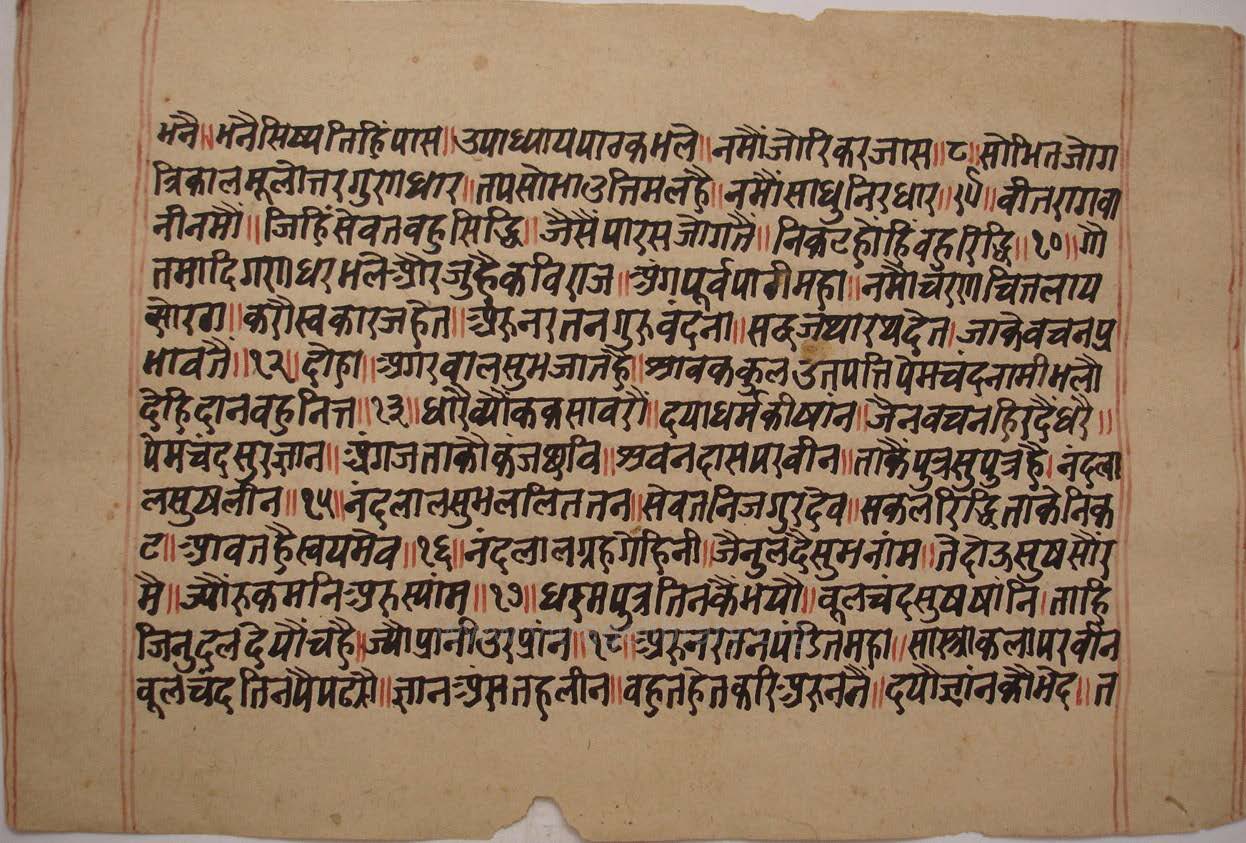 भनै॥भनैसिष्यतिहिंपास॥उपाध्यायपाठकभले॥नमौंजोरिकरजास॥८॥सोभितजोग
त्रिकालमूलोत्तरगुराधार॥तपसोभाउत्तिमलहै॥नमौंसाधुनिरधार॥९॥वीतरागवा
नीनमौं॥जिहिंसेवतवहुसिद्धि॥जैसैंपारसजोगतैं॥निकटहोंहिंवहुरिद्धि॥१०॥गौ
तमादिगणधरभलेऔरजुहैकविराज॥अंगपूर्वपाठीमहा॥नमौचरणचितलाय
करौस्वकारजहेत॥अरुनरतनगुरुवंदना॥जाकेवचनप्र
भावतैं॥१२॥दोहा॥अगरवालसुभजातहै॥श्रावककुलउतपत्तिपेमचंदनामीभलौ
देहिदानवहुनित्त॥१३॥दयाधर्मकीषांन॥जैनवचनहिरदैंधरै॥
पेमचंदसुरज्ञान॥अंगजताकौकंजछवि॥श्रवनदासपरवीन॥ताकैंपुत्रसुपुत्रहै।नंदला
लसुषलीन॥१५॥नंदलालसुभललिततन॥सेवतनिजगुरदेव॥सकलरिद्धिताकेनिक
ट॥आवतहैस्वयमेव॥१६॥नंदलालग्रहगेहिनी॥जैनुलदैसुभनांम॥तेदोऊसुषसौंर
मै॥ज्यौंरुकमनिअरुस्यांम॥१७॥धरमपुत्रतिनकैंभयौ॥वूलचंदसुषषांनि।ताहि
जिनुदलदेयौंचहै॥ज्यौप्रानीउरप्रांन॥१८॥अरुनरतनपंडितमहा॥सास्त्रकलापरवीन
वूलचंदतिनपैपढ्यौ॥ज्ञानअंसतहलीन॥वहुतहेतकरिअरुननै॥दयौज्ञांनकौभेद॥त